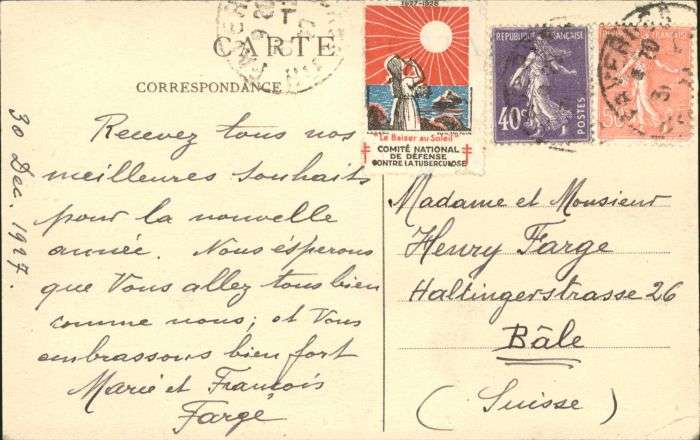 CARTE
CORRESPONDANCE
30 Dec. 1927.
Recevez tous nos
meilleures souhaits
pour la nouvelle
année. Nous ésperons
que Vous allez tous bien
comme nous; et Vous
embrassons bien fort
Marie et François
Farge
1927-1928
"Le Baiser au Soleil"
COMITÉ NATIONAL
DE DÉFENSE
CONTRE LA TUBERCULOSE
REPUBLIQUE FRANÇAISE
40c
POSTES
Madame et Monsieur
Henry Farge
Haltingerstrasse 26
Bâle
(Suisse)